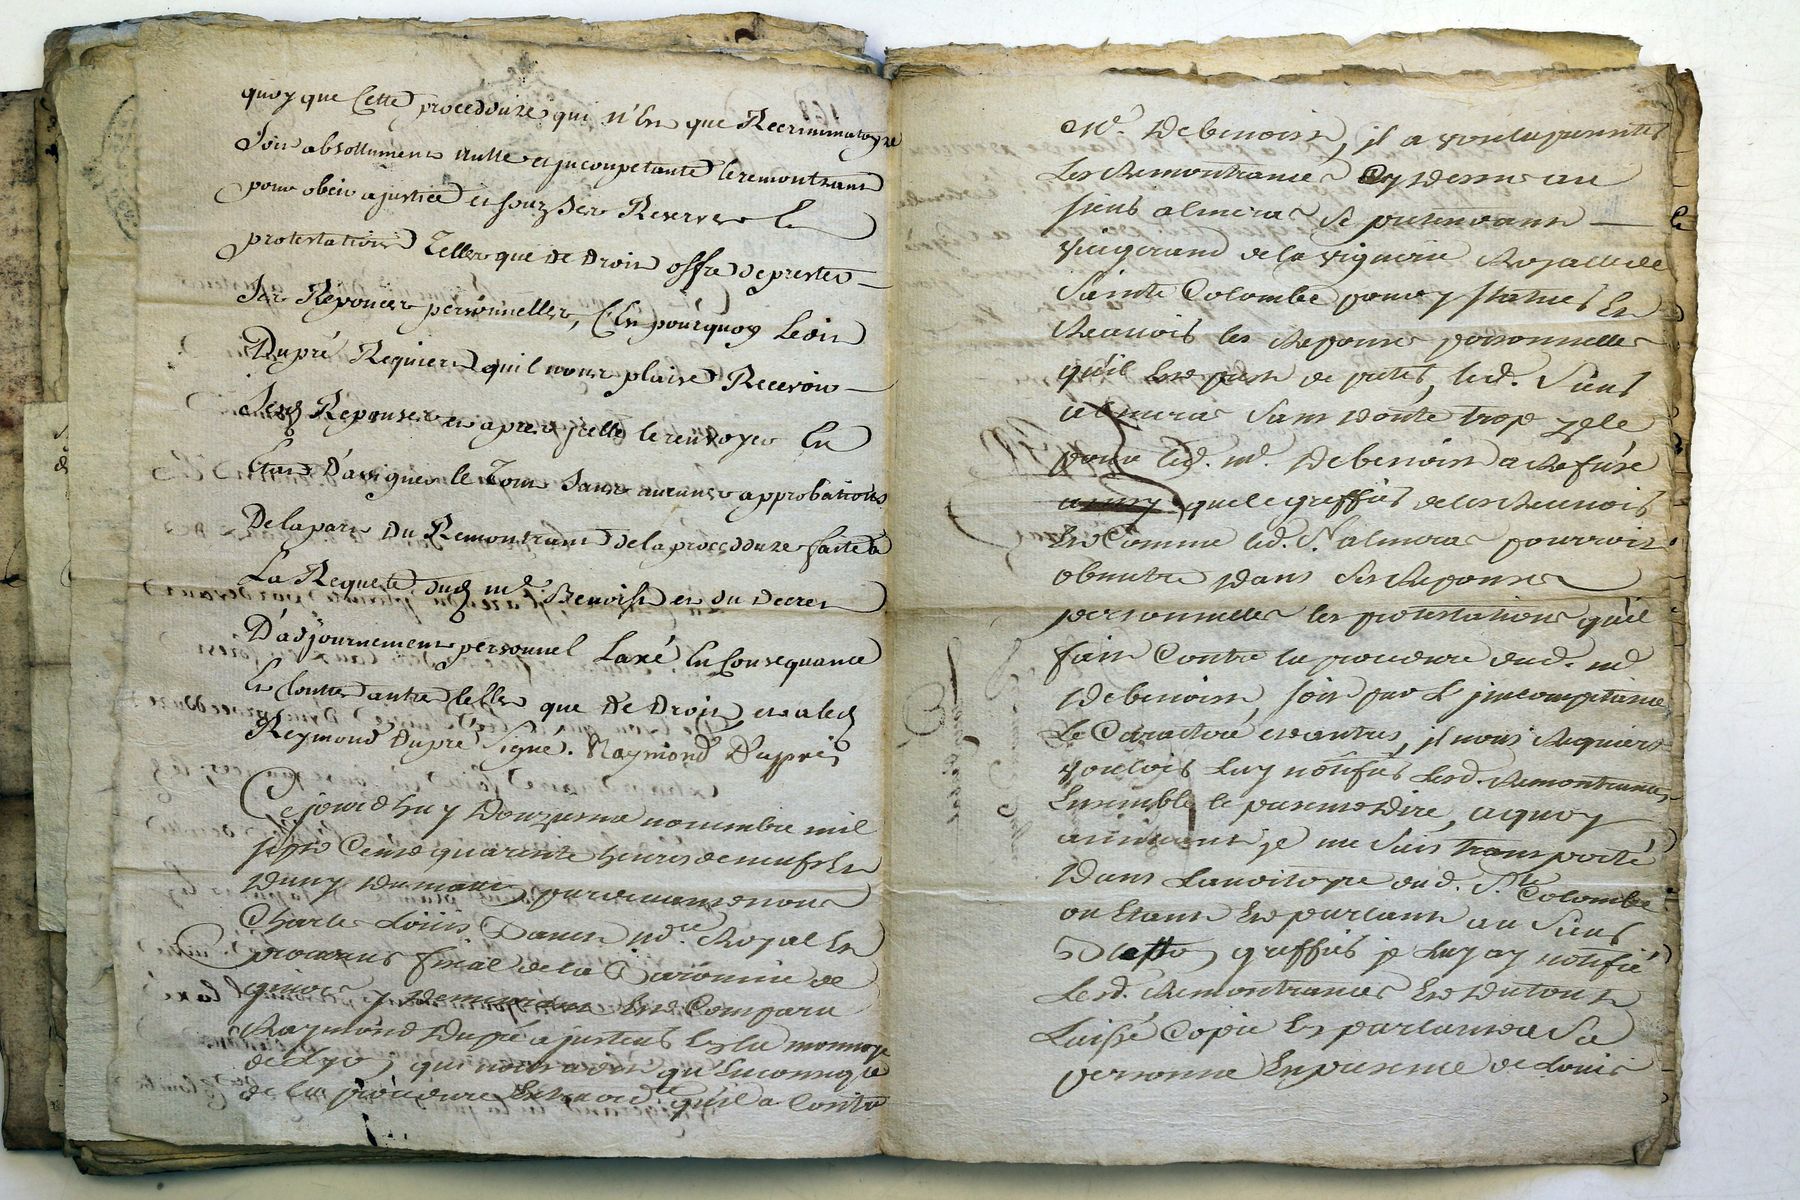 quoy que Cette proceddure qui n'Est que Recriminatoyre
Soit absollument nulle et jncompetante le remontrant
pour obeir a justice et souz Ses Reserves Et
protestations Telles que de Droit offre de prester
Ses Reponces personnelles, C'Est pourquoy Ledit
Dupré Requiert qu'il vous plaise Recevoir
Sesd Reponses et apres jcelle le renvoyer En
Etat D'assigner le Tout Sans aucune approbations
De la part du Remontrant de la proceddure faitte a
La Requette dud md Benoist et du decret
D'adjournement personnel Laxé En Consequance
Et Contre autre telles que de Droit et a led
Reymond Dupré Signé. Raymond Duppré
Ce jourd'huy Douzieme novembre mil
sept Cents quarente heures de neuf Et
du matin pardevant nous
Charle Loüis Danet nre Royal Et
procureur fiscal de la Baronnie de
Est Comparu
Raymond Dupré ajusteur En la monnoye
de Lyo, qui nous a dit qu'En consequence
de la procedure Extraord. qu'il a Contre
Mr. Debenoist, jl a voulu presenter
Les Remontrances Cy dessus au
sieur almeras Se pretendant
Viugerand de la viguerie Royalle de
Sainte Colombe pour y statuer Et
Recevoir les Reponses personnelles
qu'il Est prest de preter, led. Sieur
almeras Sans doutte trop zele
pour led. md. Debenoist a Refusé
que le greffier de les Recevoir
Et Comme led. Sr. almeras pourroit
obmettre dans Ses Reponses
personnelles les protestations qu'il
fait Contre la procedure dud. md
Debenoist, soit par L'jncompetance
Le Caractere et autres, jl nous Requiert
vouloir Luy notifier Lesd. Remontrances
Ensemble le present Dire, a quoy
adherant je me Suis transporté
Dans Lauditoyre dud. Ste Colombe
ou Etant Et parlant au Sieur
greffier je Luy ay notifié
Lesd. Remontrances Et du tout
Laissé Copie En parlant a Sa
personne En presence de Louis